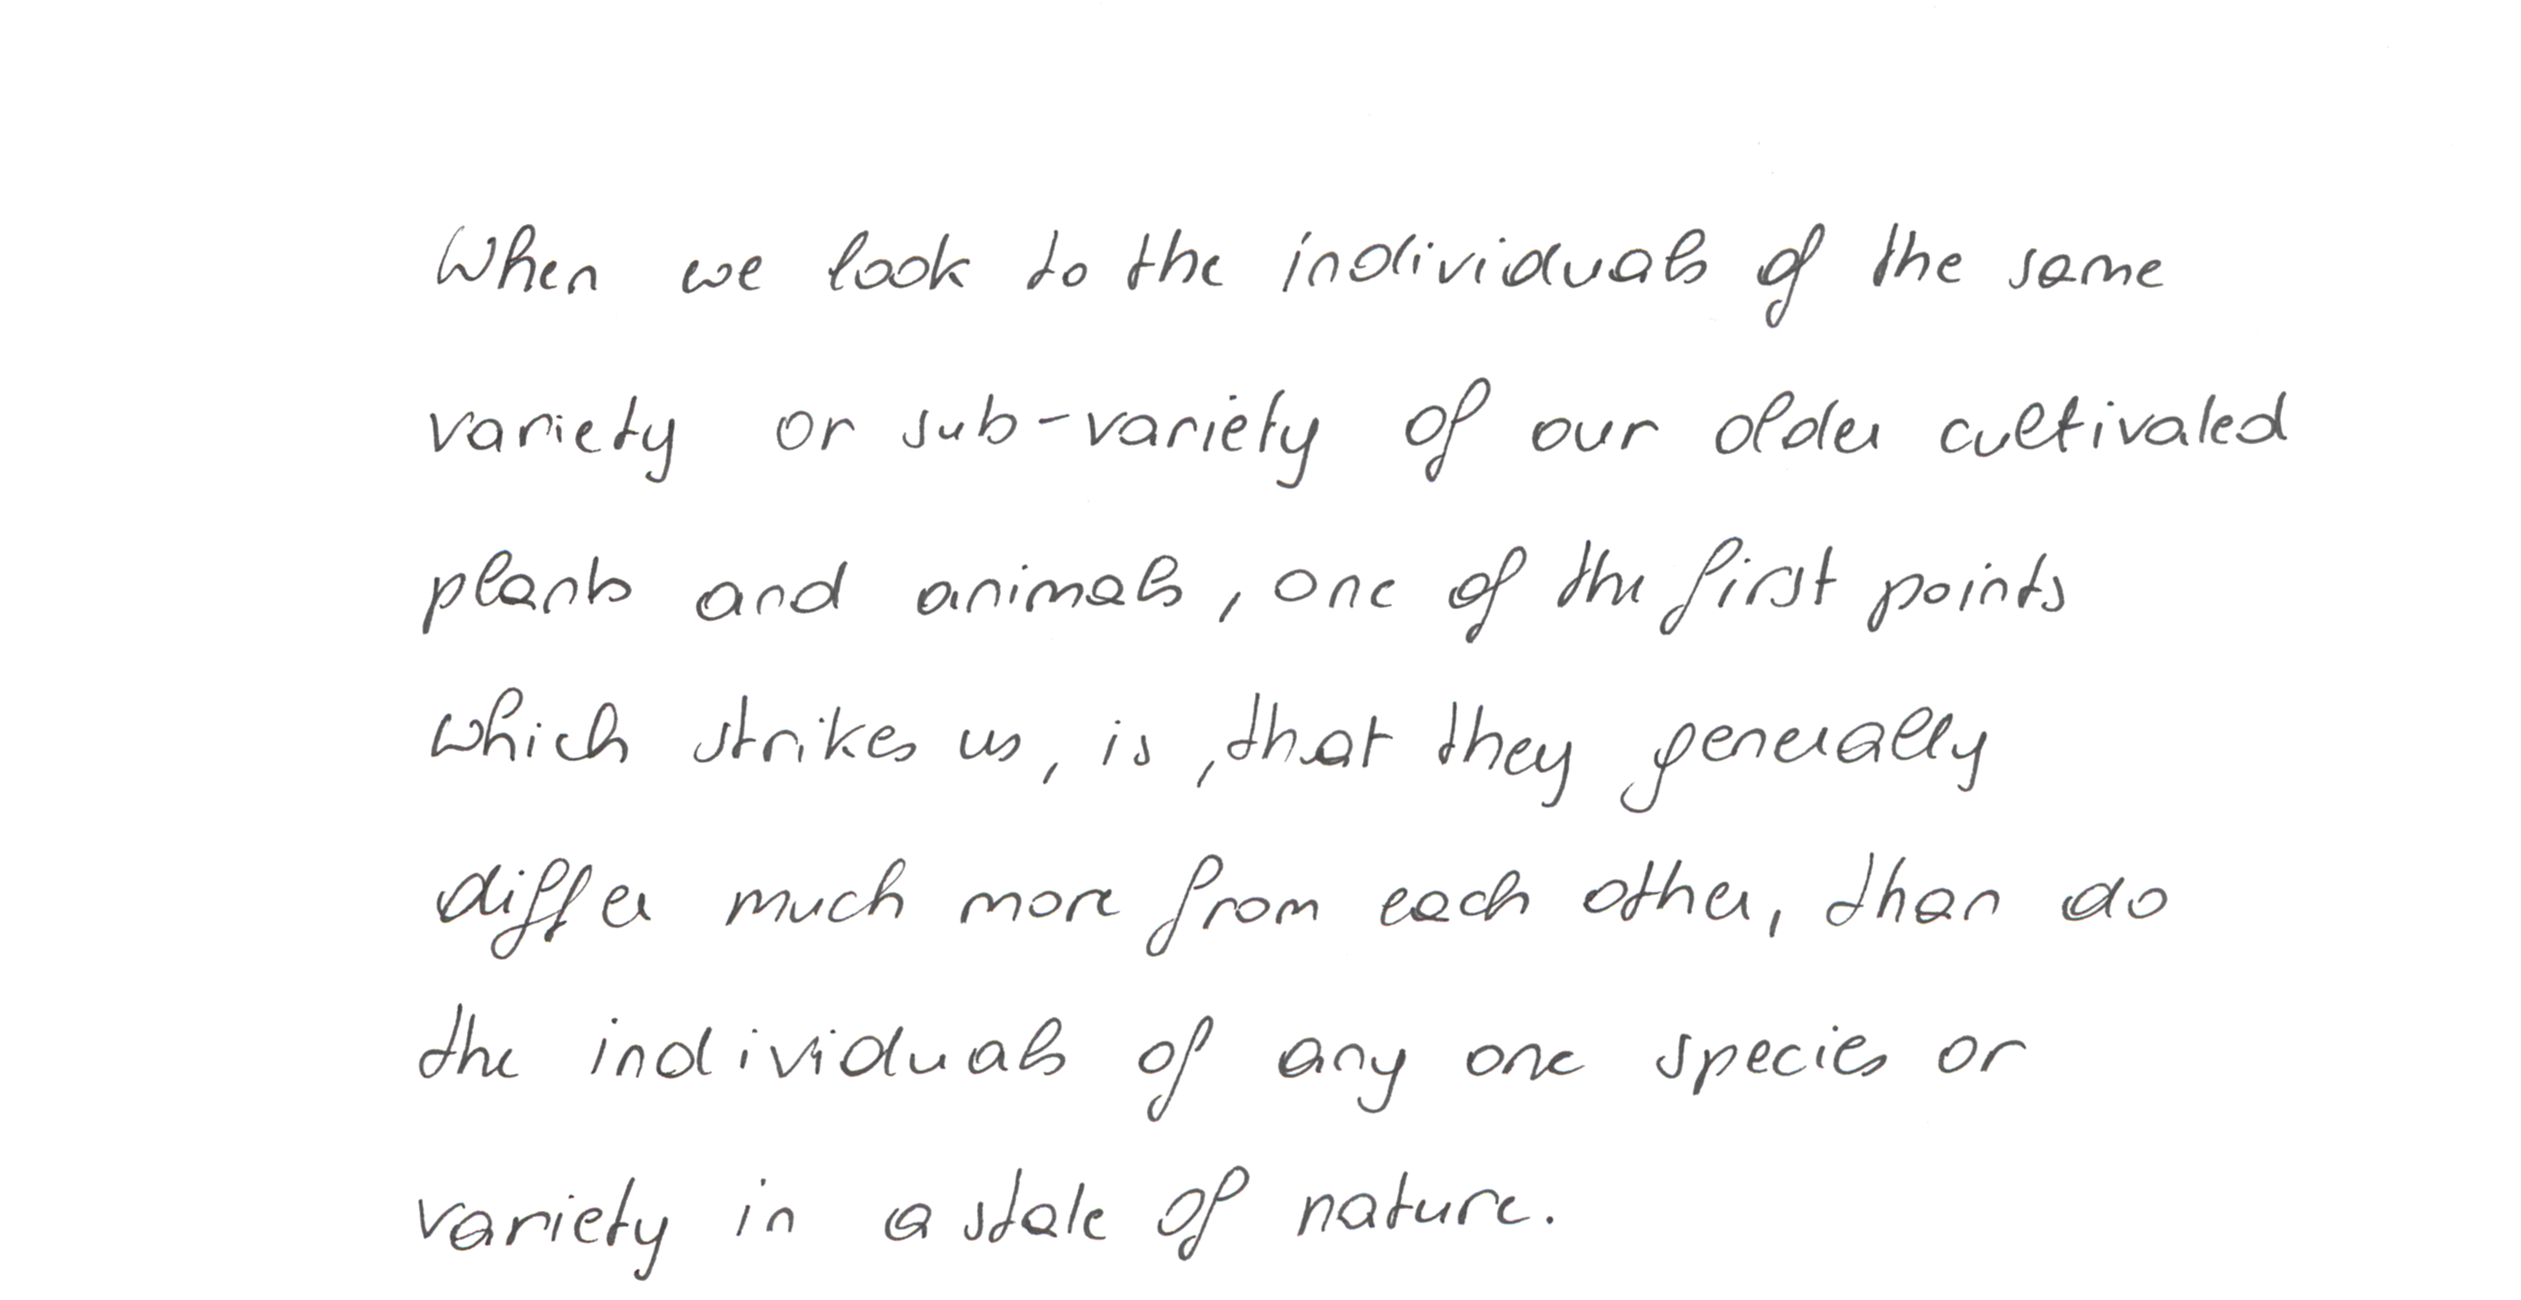 When we look to the individuals of the same
variety or sub-variety of our older cultivated
plants and animals, one of the first points
which strikes us, is, that they generally
differ much more from each other, than do
the individuals of any one species or
variety in a state of nature.